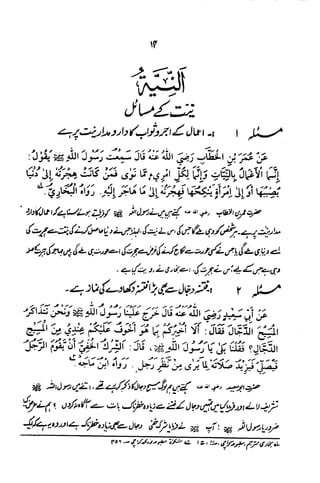 ۱۴
اَلنِّيَّةُ
نیت کے مسائل
مسئلہ ۱ ۔ اعمال کے اجر و ثواب کا دار و مدار نیت پر ہے
عَنْ عُمَرَ بْنِ الْخَطَّابِ رَضِيَ اللهُ عَنْهُ قَالَ سَمِعْتُ رَسُولَ اللهِ ﷺ يَقُولُ :
إِنَّمَا الْأَعْمَالُ بِالنِّيَّاتِ وَإِنَّمَا لِكُلِّ امْرِىءٍ مَّا نَوَى فَمَنْ كَانَتْ هِجْرَتُهُ إِلَى دُنْيَا
يُصِيبُهَا أَوْ إِلَى امْرَأَةٍ يَنْكِحُهَا فَهِجْرَتُهُ إِلَى مَا هَاجَرَ إِلَيْهِ . رَوَاهُ الْبُخَارِيُّ
حضرت عمر بن الخطاب رضی اللہ عنہ کہتے ہیں میں نے رسول اللہ ﷺ کو فرماتے ہوئے سنا ہے کہ اعمال کا دارومدار
نیت پر ہے۔ ہر شخص کو وہی ملے گا جس کی اس نے نیت کی۔ لہذا جس نے دنیا حاصل کرنے کی نیت سے ہجرت کی
اسے دنیا ہی ملے گی
مسئلہ ۲ ۔ فتنہ دجال سے بھی بڑا فتنہ دکھاوے کی نماز ہے۔
عَنْ أَبِي سَعِيدٍ رَضِيَ اللهُ عَنْهُ قَالَ خَرَجَ عَلَيْنَا رَسُولُ اللهِ ﷺ وَنَحْنُ نَتَذَاكَرُ
الْمَسِيحَ الدَّجَّالَ فَقَالَ : أَلَا أُخْبِرُكُمْ بِمَا هُوَ أَخْوَفُ عَلَيْكُمْ عِنْدِي مِنَ الْمَسِيحِ
الدَّجَّالِ ؟ فَقُلْنَا بَلَى يَا رَسُولَ اللهِ ﷺ ، قَالَ : الشِّرْكُ الْخَفِيُّ أَنْ يَقُومَ الرَّجُلُ
فَيُصَلِّيَ فَيَزِيدَ صَلَاتَهُ لِمَا يَرَى مِنْ نَظَرِ رَجُلٍ . رَوَاهُ ابْنُ مَاجَهْ
حضرت ابو سعید رضی اللہ عنہ کہتے ہیں ہم لوگ مسیح دجال کا ذکر کر رہے تھے۔ اتنے میں رسول اللہ ﷺ
تشریف لائے اور فرمایا کیا میں تمہیں دجال کے فتنے سے زیادہ خطرناک بات سے آگاہ نہ کروں ؟ ہم نے عرض کیا
ضرور یا رسول اللہ ﷺ ! آپ ﷺ نے فرمایا شرک خفی دجال سے بھی زیادہ خطرناک ہے اور وہ یہ ہے کہ ایک